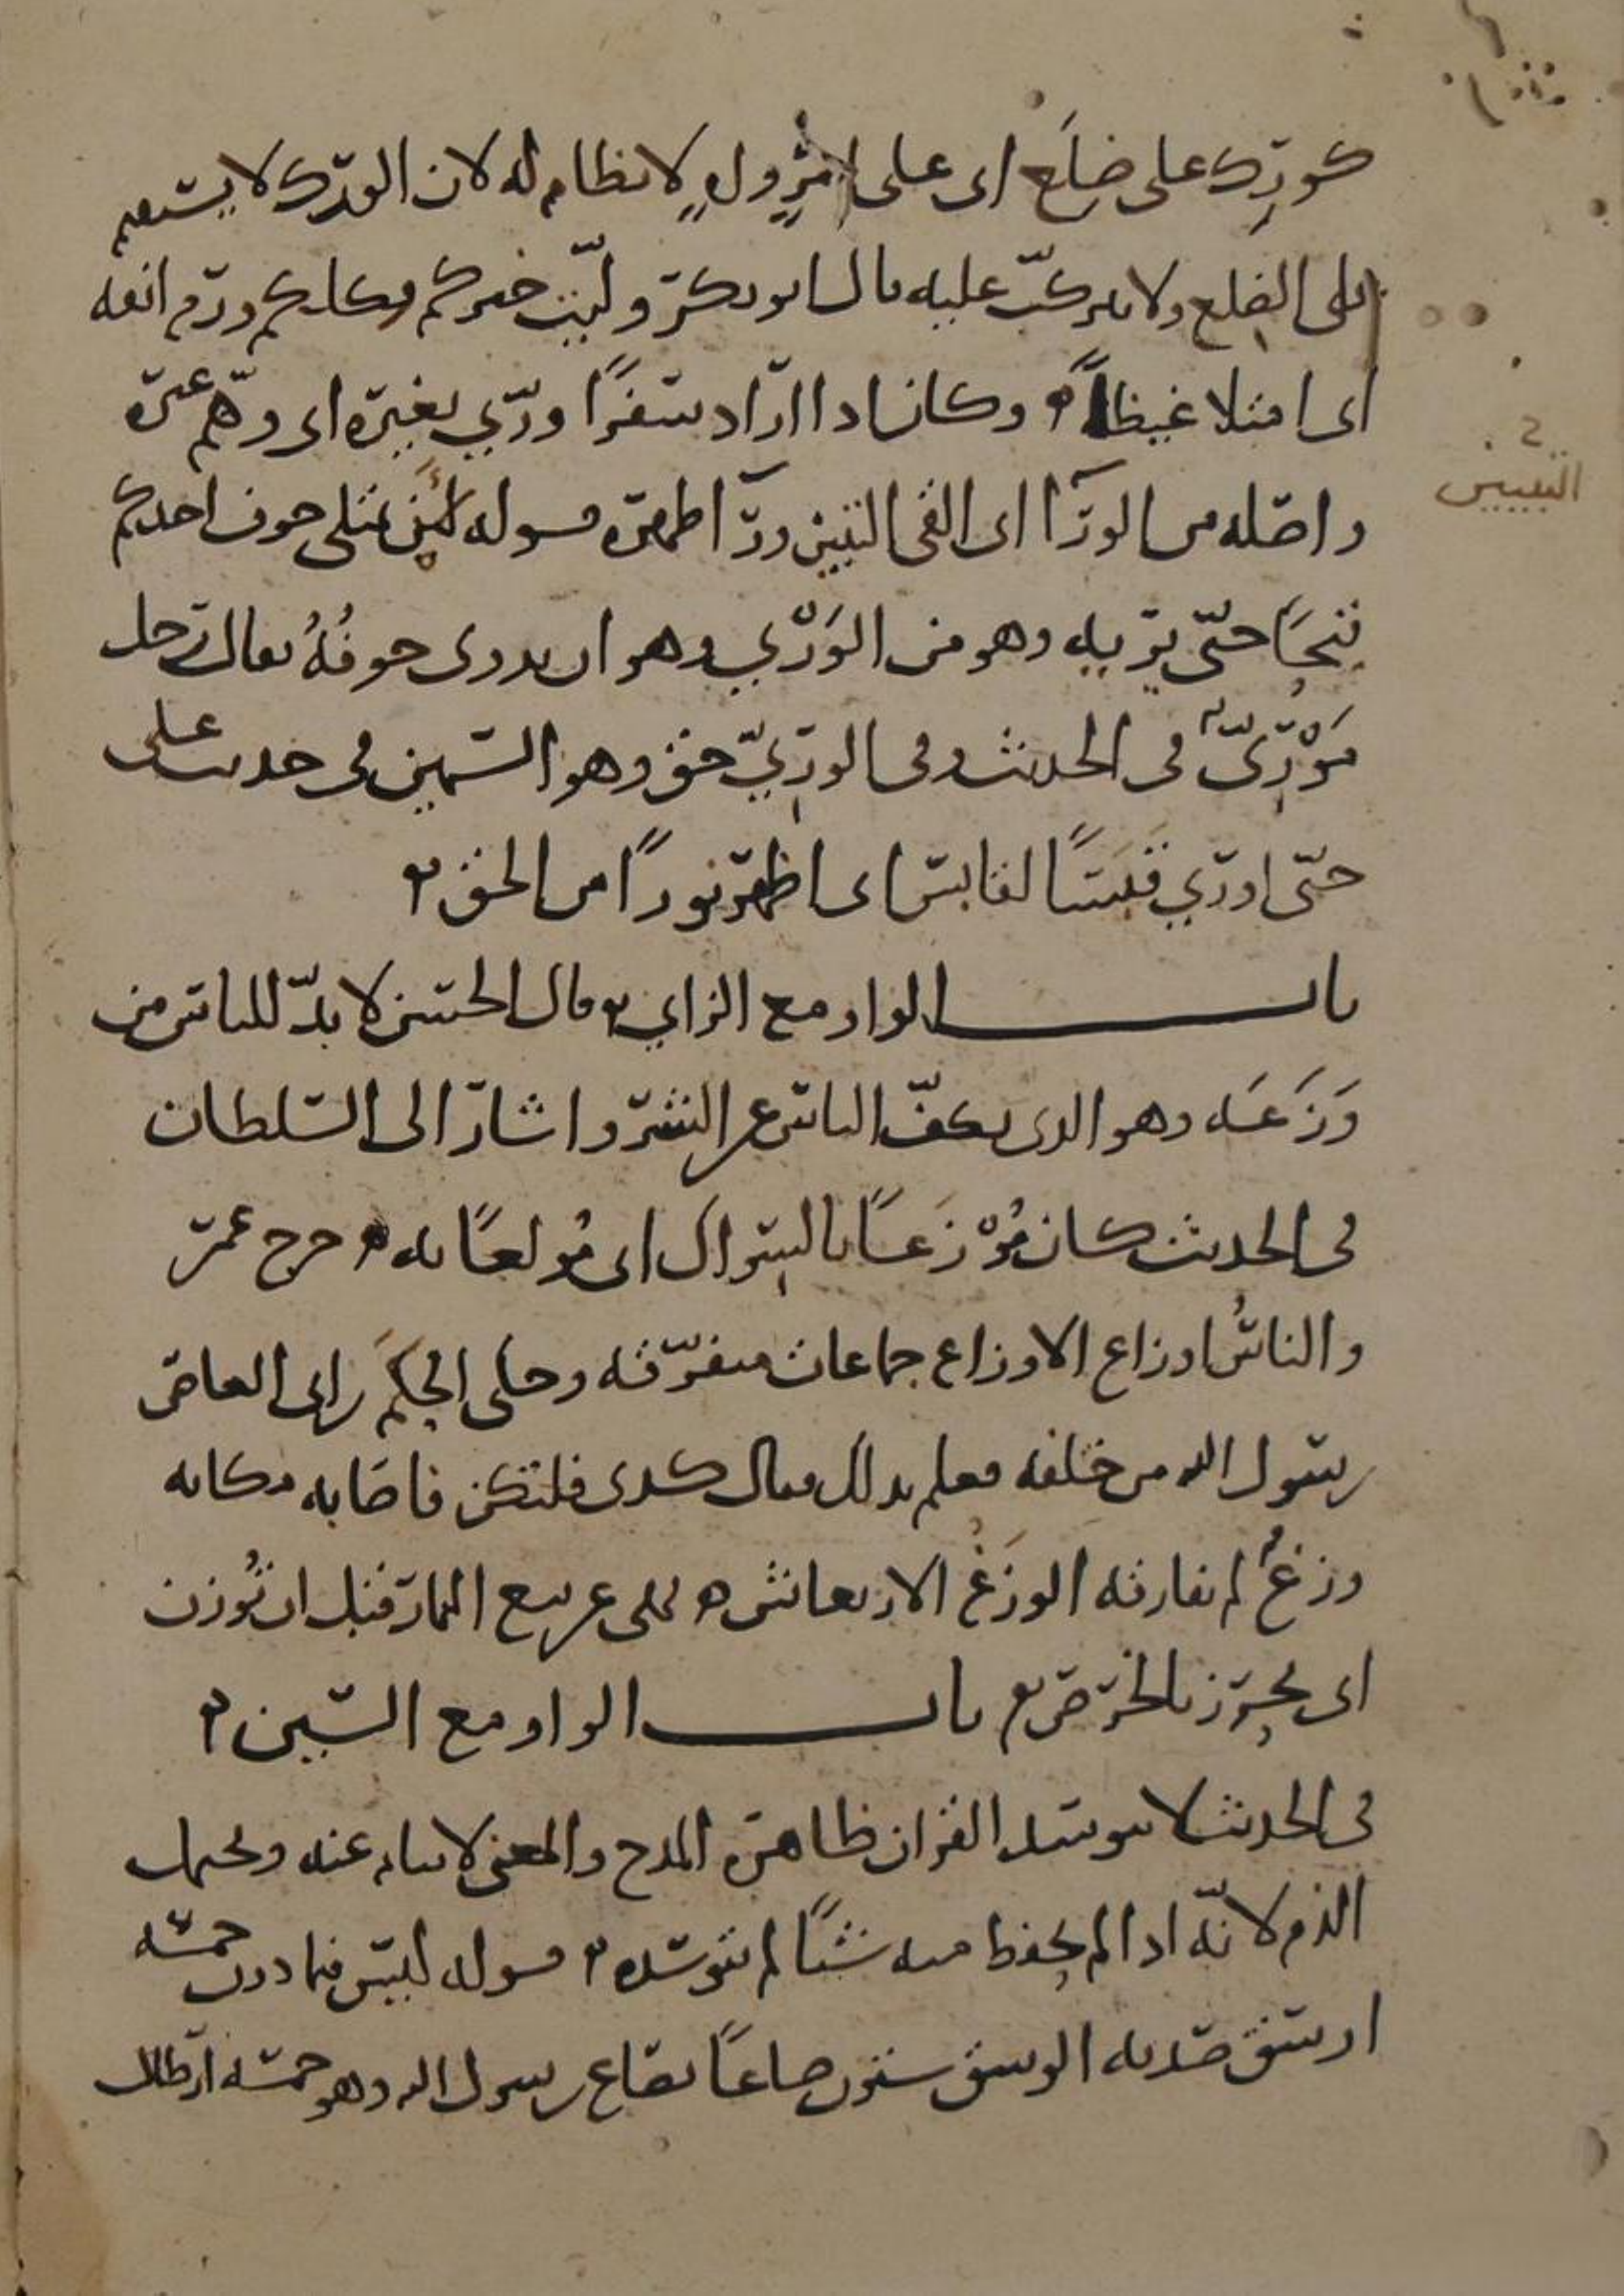 كورك على ضلع اى على امر واهٍ لا نظام له لان الورك لا يستقيم
على الضلع ولا يتركب عليه قال ابو بكر وليت خيركم فكلكم ورم انفه
اى امتلا غيظاً وكان اذا اراد سفرًا ورّي بغيره اى وهّم غيره
واصله من الورآ اى القى التبيين ورآ اظهره قوله لئن يمتلى جوف احدكم
قيحًا حتّى يريه وهو من الوَرْي وهو ان يدوى جوفُهُ يقال رجل
مَوْرِىٌّ فى الحديث وفى الورِيّ حق وهو السمين فى حديث على
حتّى اورّي قبسًا لقابس اى اظهر نورًا من الحق
باب الواو مع الزاي قال الحسن لا بدّ للناس من
وَزَعَه وهو الذى يكفّ الناس عن الشر واشار الى السلطان
فى الحديث كان مُوْزَعًا بالسواك اى مُولعًا به خرج عمر
والناسُ اوزاع الاوزاع جماعات متفرّقه وحكى الحكم بن ابى العاص
رسول الله من خلفه فعلم بذلك فقال كذى فلتكن فاصابه مكانه
وزغٌ لم يفارقه الوزَغْ الارتعاش نهى عن بيع الثمار قبل ان تُوزن
اى تحرز بالخرص باب الواو مع السّين
فى الحديث لا يتوسد القران ظاهره المدح والمعنى لا ينام عنه ويحتمل
الذم لانّه اذا لم يحفظ منه شيًا لم يتوسّده قوله ليس فيما دون خمسه
اوسق صدقه الوسق ستون صاعًا بصاع رسول الله وهو خمسه ارطال
التبيين